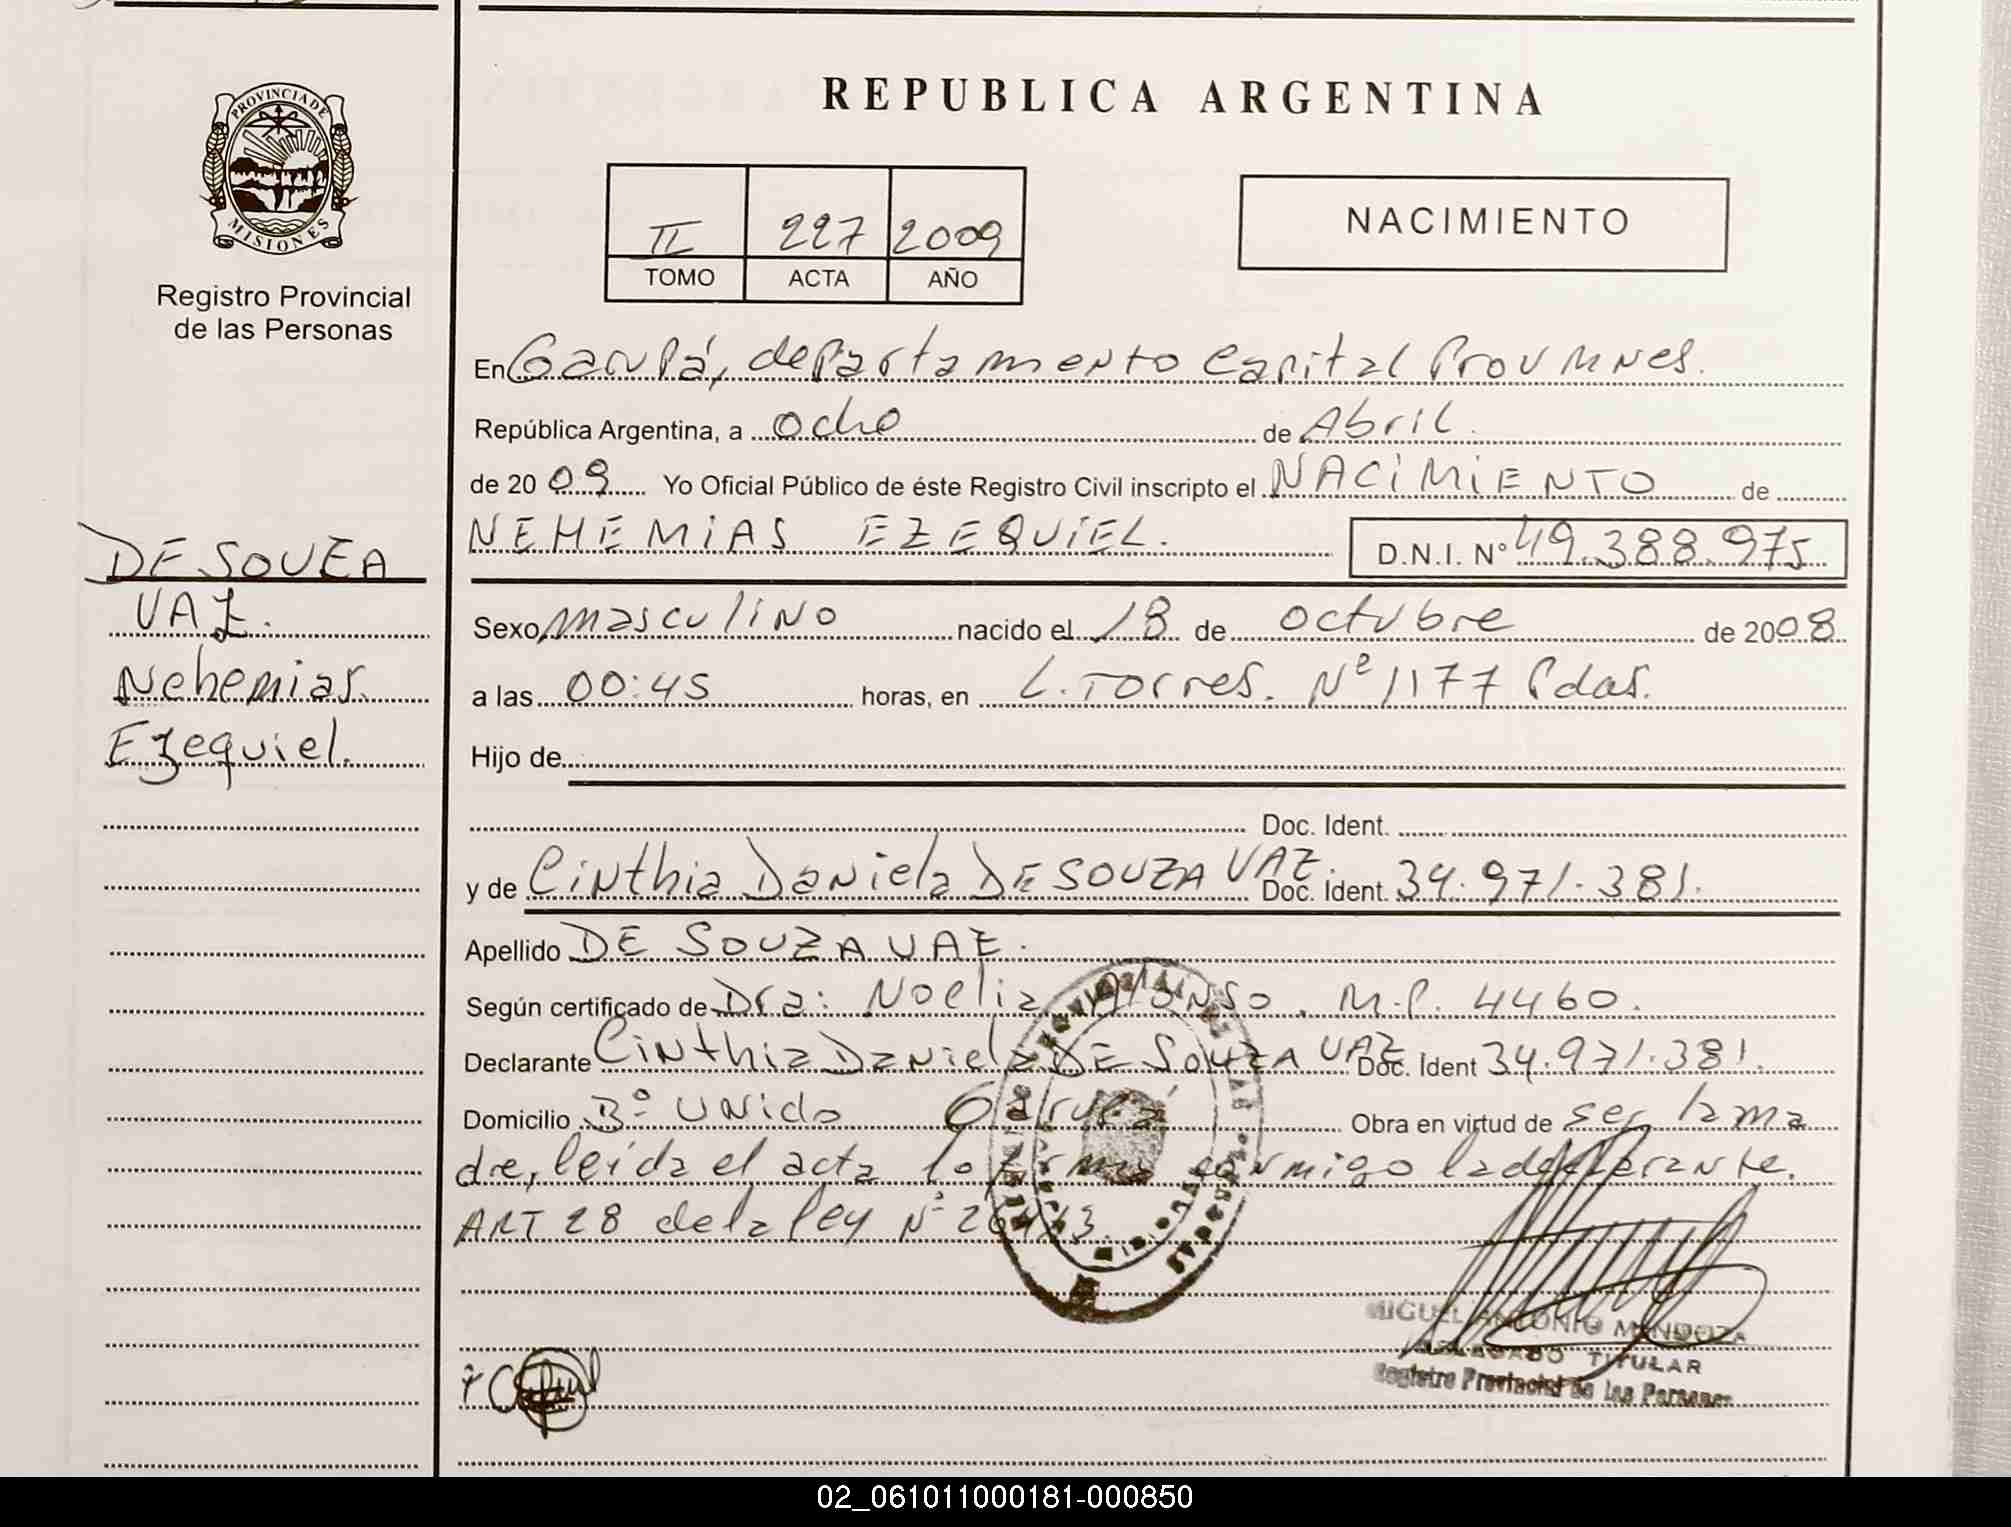 REPUBLICA ARGENTINA
PROVINCIA DE
MISIONES
Registro Provincial
de las Personas
II 227 2009
TOMO ACTA AÑO
NACIMIENTO
En Garupá, departamento Capital Prov Mnes.
República Argentina, a ocho de Abril.
de 20 09 Yo Oficial Público de éste Registro Civil inscripto el NACIMIENTO de
NEHEMIAS EZEQUIEL. D.N.I. Nº 49.388.975
DE SOUZA
VAZ.
Nehemias
Ezequiel.
Sexo masculino nacido el 18 de octubre de 2008
a las 00:45 horas, en L. Torres. Nº 1177 Pdas.
Hijo de
Doc. Ident.
y de Cinthia Daniela DE SOUZA VAZ. Doc. Ident. 34.971.381.
Apellido DE SOUZA VAZ.
Según certificado de Dra: Noelia Alonso. M.P. 4460.
Declarante Cinthia Daniela DE SOUZA VAZ Doc. Ident 34.971.381.
Domicilio Bº Unido Garupá Obra en virtud de ser la ma
dre, leída el acta la firma conmigo la declarante.
ART 28 de la ley Nº 26413.
MIGUEL ANTONIO MENDOZA
DELEGADO TITULAR
Registro Provincial de las Personas
02_061011000181-000850